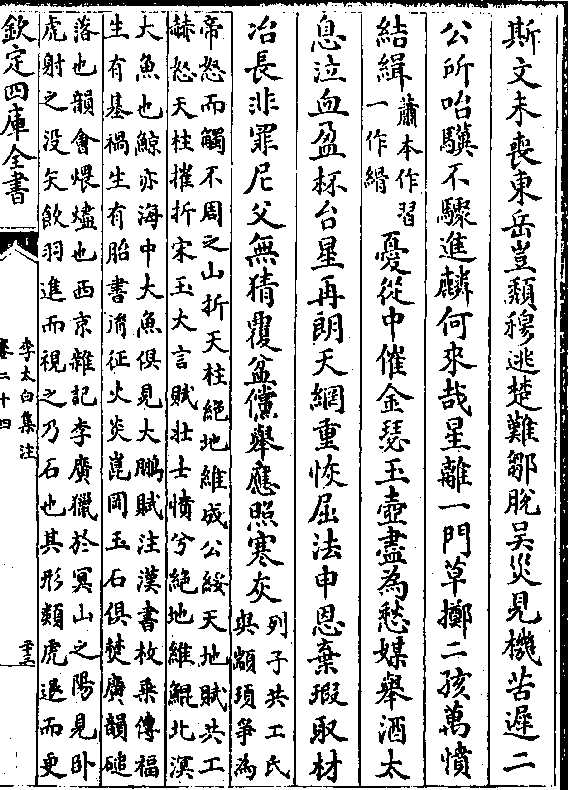 斯文未喪東岳豈頹穆逃楚難鄒脫吳災見機苦遲二
公所咍驥不驟進麟何來哉星離一門草擲二孩萬憤
結緝蕭本作習一作緡憂從中催金瑟玉壺盡為愁媒舉酒太
息泣血盈杯台星再朗天網重恢屈法申恩棄瑕取材
冶長非罪尼父無猜覆盆儻舉應照寒灰列子共工氏與顓頊爭為
帝怒而觸不周之山折天柱絕地維成公綏天地賦共工
赫怒天柱摧折宋玉大言賦壯士憤兮絕地維鯤北溟
大魚也鯨亦海中大魚俱見大鵬賦注漢書枚乘傳福
生有基禍生有胎書胤征火炎崑岡玉石俱焚廣韻磓
落也韻會煨燼也西京雜記李廣獵於冥山之陽見卧
虎射之没矢飲羽進而視之乃石也其形類虎退而更
欽定四庫全書
李太白集注
卷二十四